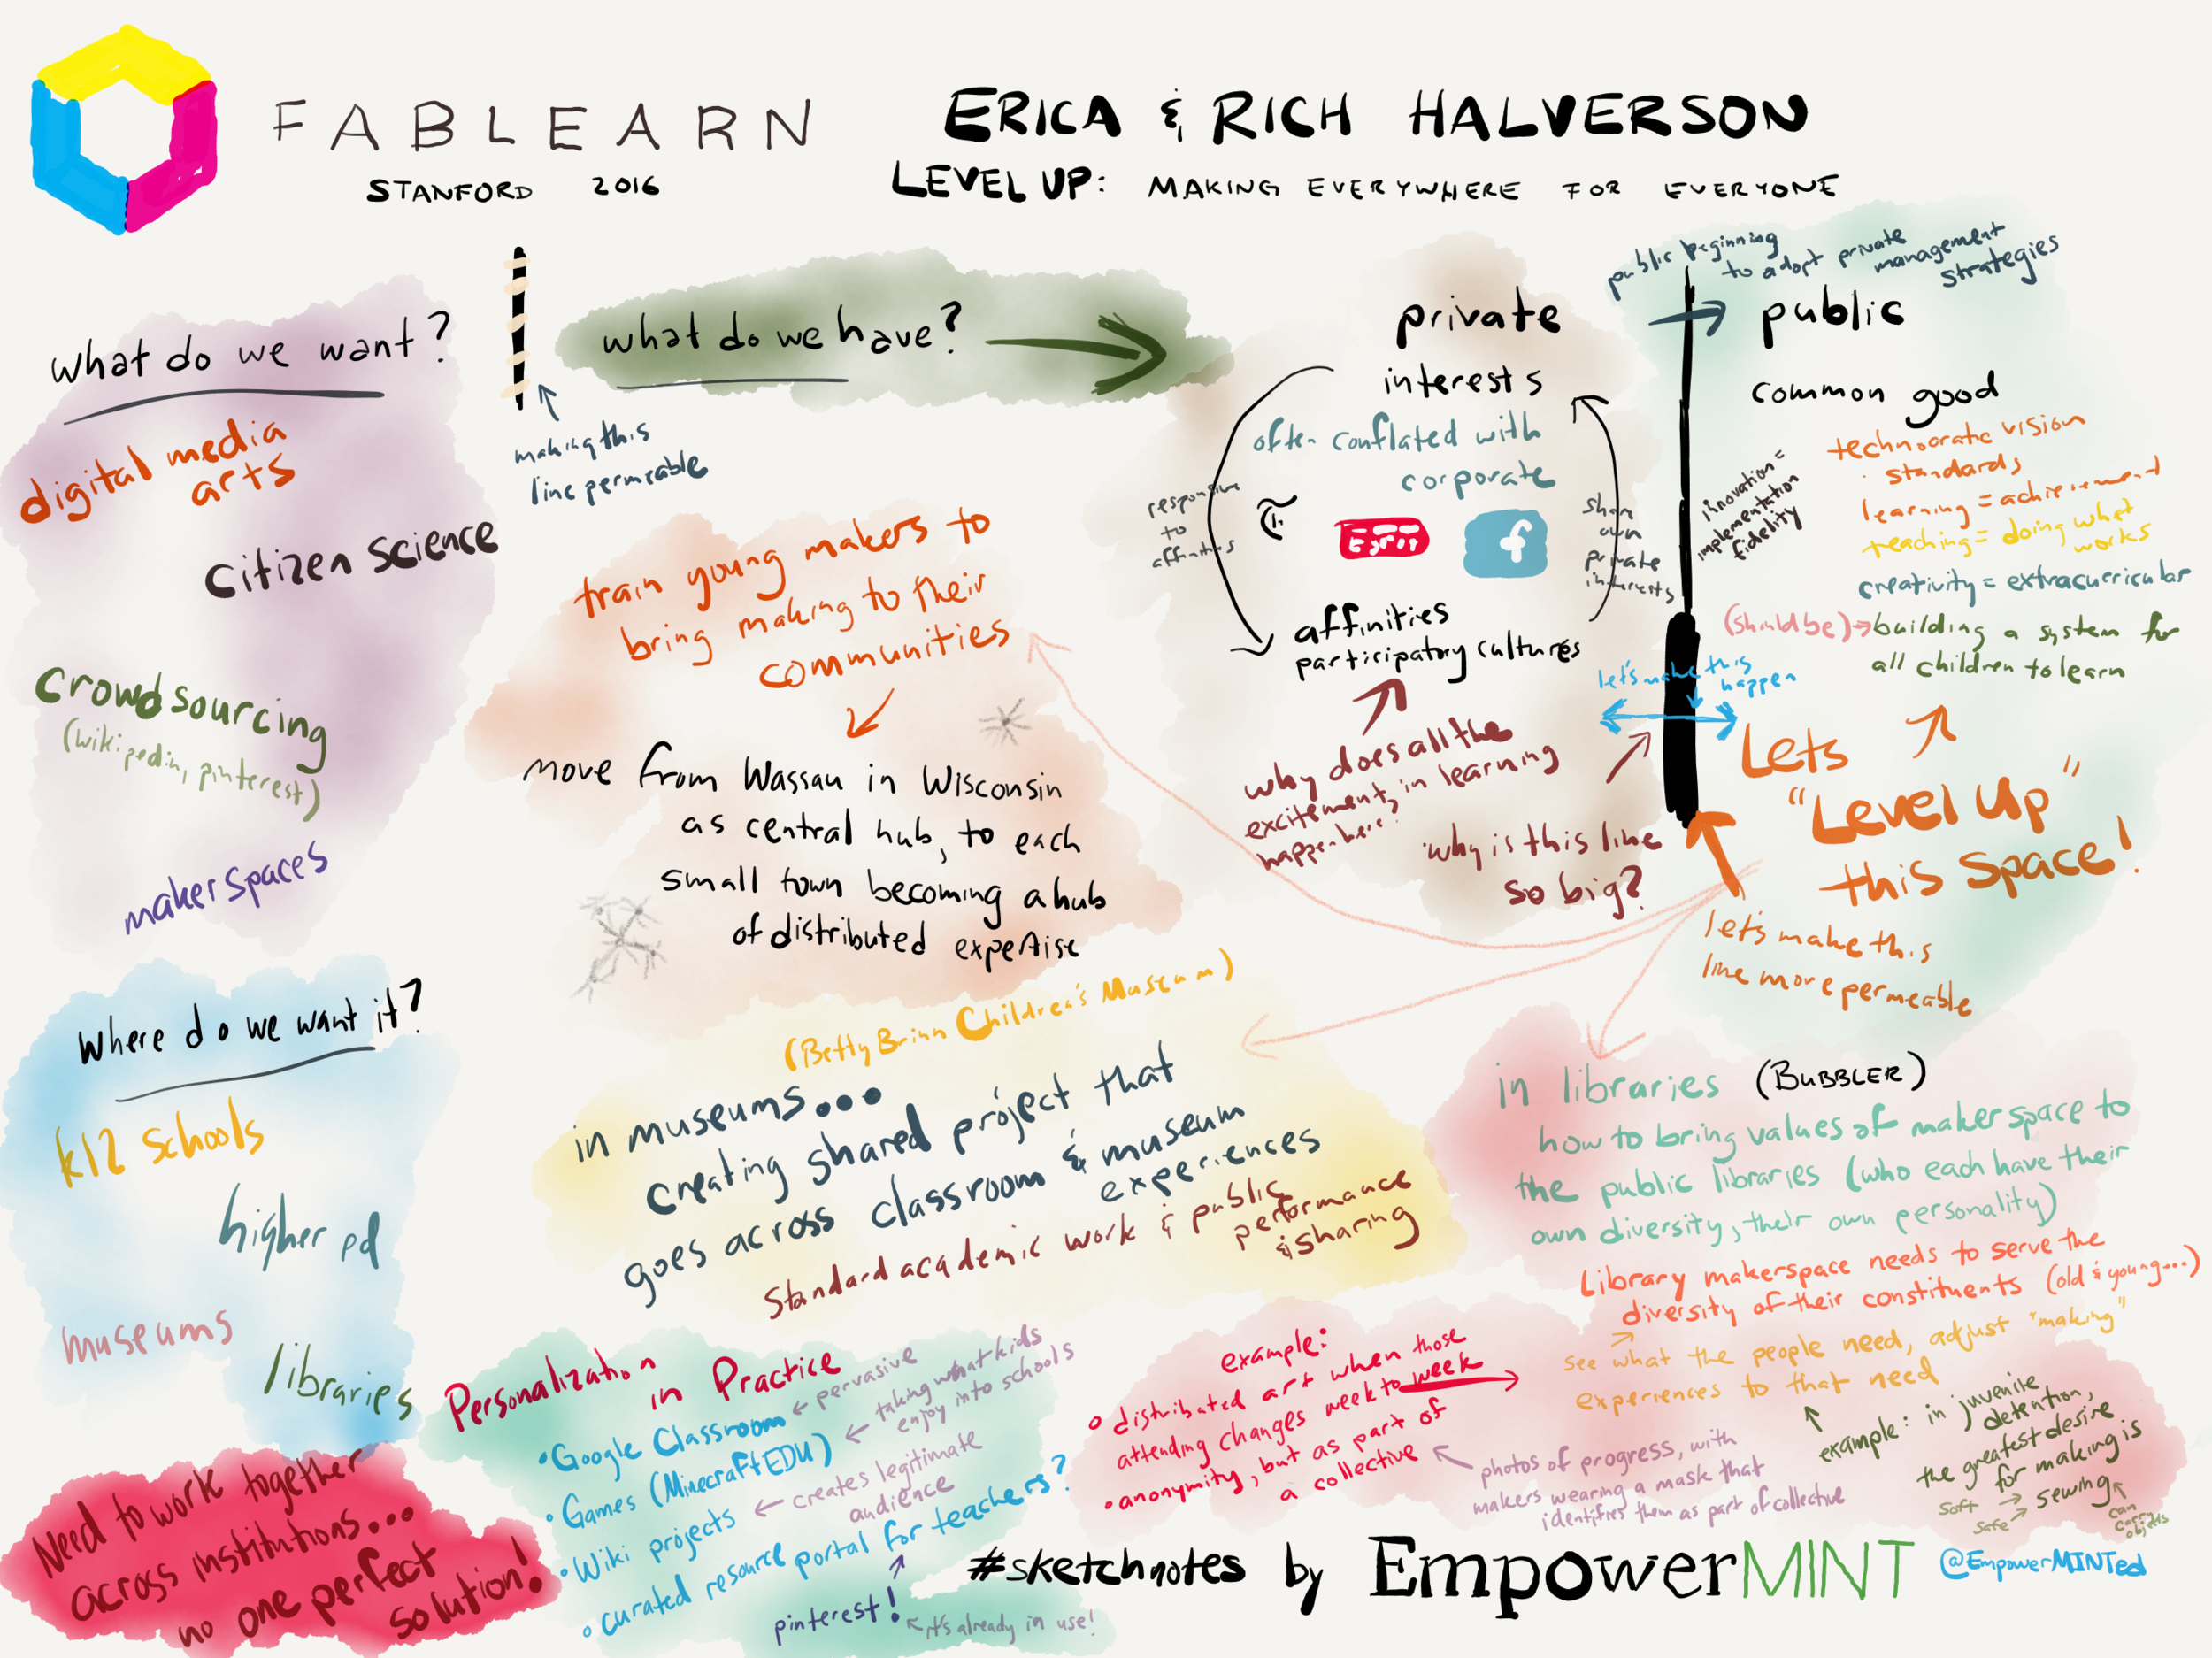 FABLEARN
STANFORD 2016
ERICA & RICH HALVERSON
LEVEL UP: MAKING EVERYWHERE FOR EVERYONE
what do we want?
digital media
arts
citizen science
crowdsourcing
(wikipedia, pinterest)
makerspaces
where do we want it?
k12 schools
higher ed
museums
libraries
Need to work together
across institutions...
no one perfect
solution!
making this
line permeable
what do we have?
train young makers to
bring making to their
communities
move from Wassau in Wisconsin
as central hub, to each
small town becoming a hub
of distributed expertise
(Betty Brinn Children's Museum)
in museums...
creating shared project that
goes across classroom & museum
experiences
Standard academic work & public
performance
& sharing
private
interests
often conflated with
corporate
responsive
to
affinities
f
share
own
private
interests
affinities
participatory cultures
why does all the
excitement, in learning
happen here?
why is this line
so big?
public beginning
to adopt private
management
strategies
public
common good
innovation =
implementation
fidelity
technocratic vision
standards
learning = achievement
teaching = doing what
works
creativity = extracurricular
(should be) → building a system for
all children to learn
let's make this
happen
Lets
"Level Up"
this Space!
let's make this
line more permeable
in libraries (BUBBLER)
how to bring values of makerspace to
the public libraries (who each have their
own diversity, their own personality)
Library makerspace needs to serve the
diversity of their constituents (old & young...)
see what the people need, adjust "making"
experiences to that need
example: in juvenile
detention,
the greatest desire
for making is
sewing
soft →
safe →
can
carry
objects
Personalization
in Practice
• Google Classroom ← pervasive
• Games (MinecraftEDU) ← taking what kids
enjoy into schools
• Wiki projects ← creates legitimate
audience
• curated resource portal for teachers?
pinterest! ← it's already in use!
example:
• distributed art when those
attending changes week to week
• anonymity, but as part of
a collective
photos of progress, with
makers wearing a mask that
identifies them as part of collective
#sketchnotes by EmpowerMINT @EmpowerMINTed